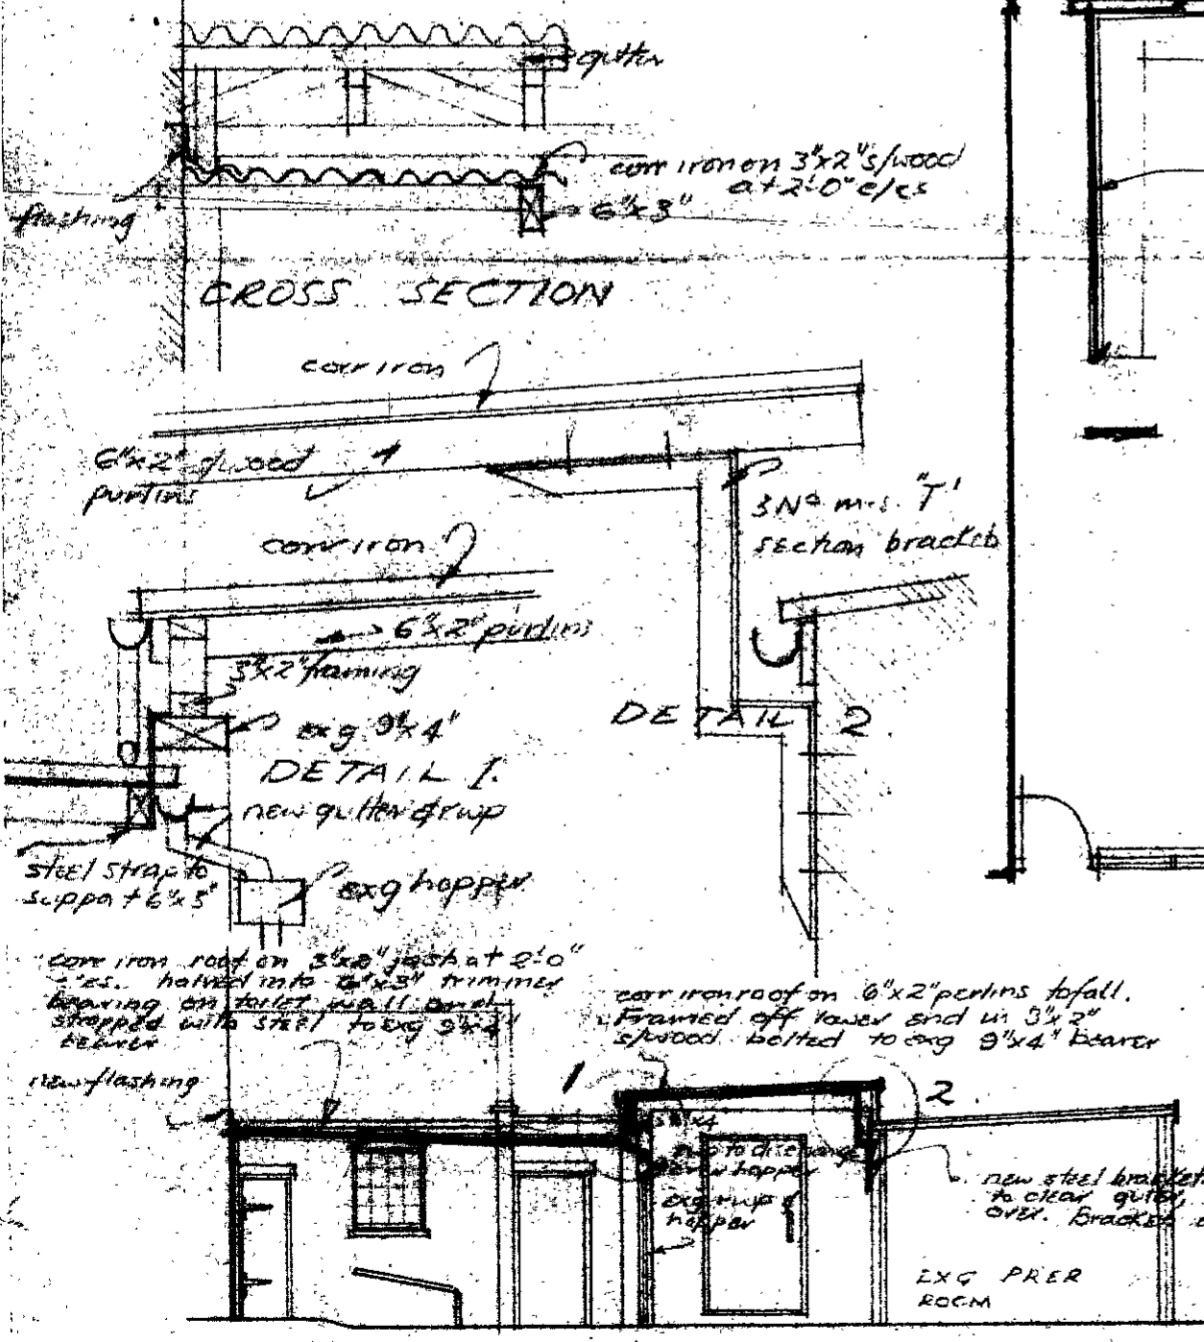 gutter
corr iron on 3"x2" s/wood
at 2'-0" c/cs
6"x3"
flashing
CROSS SECTION
corr iron
6"x2" s/wood
purlins
3 No m.s. "T"
section brackets
corr iron
6"x2" purlins
3"x2" framing
exg 9"x4"
DETAIL 2
DETAIL 1.
new gutter & rwp
steel strap to
support 6"x3"
exg hopper
corr iron roof on at 2'-0"
halved into 6"x3" trimmer
bearing on toilet wall and
strapped with steel to exg 9"x4"
bearer
corr iron roof on 6"x2" perlins to fall.
Framed off lower end in 3"x2"
s/wood bolted to exg 9"x4" bearer
new flashing
1
2
rwp to discharge
hopper
exg rwp &
hopper
new steel bracket
to clear gutter
over. Bracket
EXG PREP
ROOM